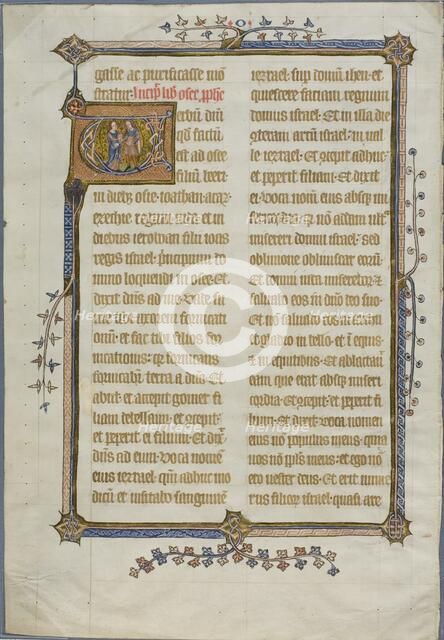 O
gasse ac purificasse mō
stratur. Incip̄ lib̄ osee. ꝓph̄e
erbum dn̄i
qd̄ factū
est ad osee
filiū beeri
in dieb; osie. ioathan. achaz
ezechie regum iuda et in
diebus ieroboam filii ioas
regis israel. Principium do
mino loquendi in osee. Et
dixit dn̄s ad osee. Vade su
me tibi uxorem fornicati
onum: et fac tibi filios for
nicationis: quia fornicans
fornicabit̄ terra a dn̄o. Et
abiit. et accepit gomer fi
liam debelaim. et concepit.
et peperit ei filium. Et dix̄
dn̄s ad eum. Voca nomen
eius iezrael. qm̄ adhuc mo
dicum et uisitabo sanguinē
iezrael. sup domū iheu. et
quiescere faciam regnum
domus israel. Et in illa die
conteram arcū israel. in ual
le iezrael. Et concepit adhuc
et peperit filiam. Et dixit
ei. Voca nomē eius absq; mi
sericordia: quia nō addam ultͣ
misereri domui israel. sed
obliuione obliuiscar eorū.
Et domui iuda miserebor. et
saluabo eos in dn̄o deo suo.
Et nō saluabo eos in arcu
et gladio. in bello. et ī equis
et in equitibus. Et ablactauit
eam que erat absq; miseri
cordia. Et concepit. et peperit fi
lium. Et dixit. Voca nomen
eius nō populus meus. quia
uos nō ppl̄s meus. et ego nō
ero uester deus. Et erit nume
rus filiorꝫ israel. quasi are
Heritage
Heritage
Heritage
Heritage